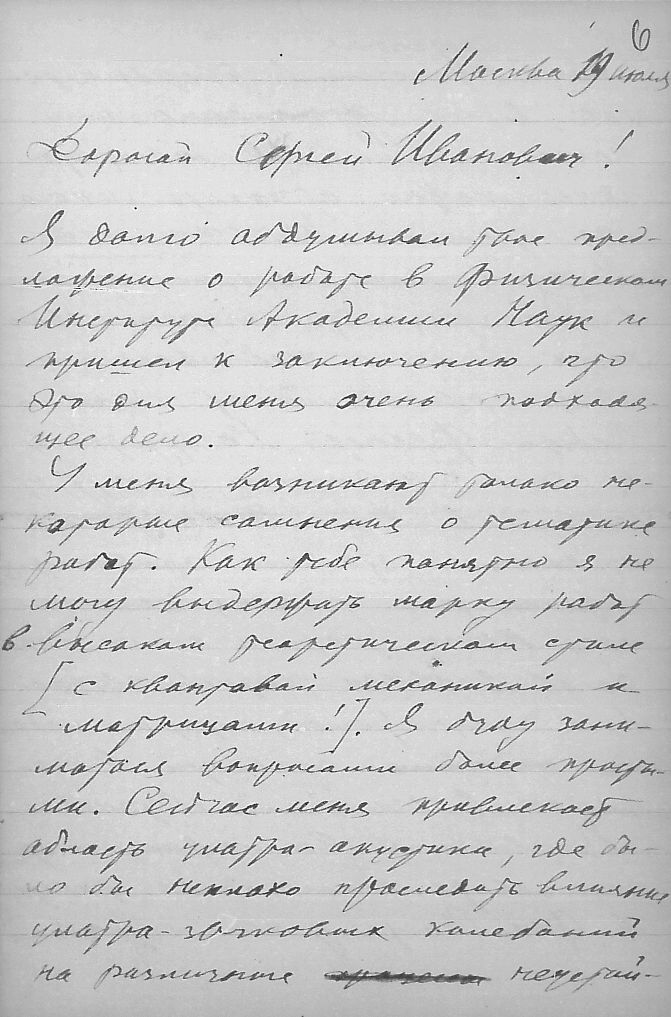 6
Москва 19 июля
Дорогой Сергей Иванович!
Я долго обдумывал твое пред-
ложение о работе в Физическом
Институте Академии Наук и
пришел к заключению, что
это для меня очень подходя-
щее дело.
У меня возникают только не-
которые сомнения о тематике
работ. Как тебе понятно я не
могу выдержать марку работ
в высоком теоретическом стиле
[с квантовой механикой и
матрицами!]. Я буду зани-
маться вопросами более просты-
ми. Сейчас меня привлекает
область ультра-акустики, где бы-
ло бы неплохо проследить влияние
ультра-звуковых колебаний
на различные неустой-